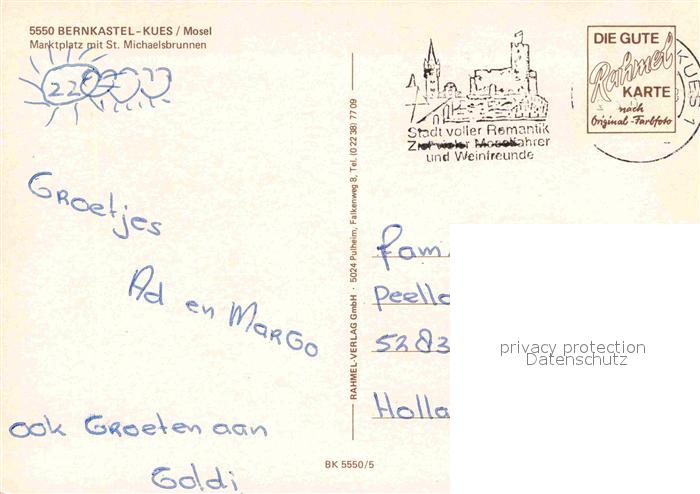 5550 BERNKASTEL-KUES / Mosel
Marktplatz mit St. Michaelsbrunnen
Groetjes
Ad en Margo
ook Groeten aan
Goldi
RAHMEL-VERLAG GmbH · 5024 Pulheim, Falkenweg 8, Tel. (0 22 38) 77 09
BK 5550/5
Stadt voller Romantik
Ziel vieler Moselfahrer
und Weinfreunde
DIE GUTE
Rahmel
KARTE
nach
Original-Farbfoto
KUES 1
fam
Peell
5283
Holla
privacy protection
Datenschutz